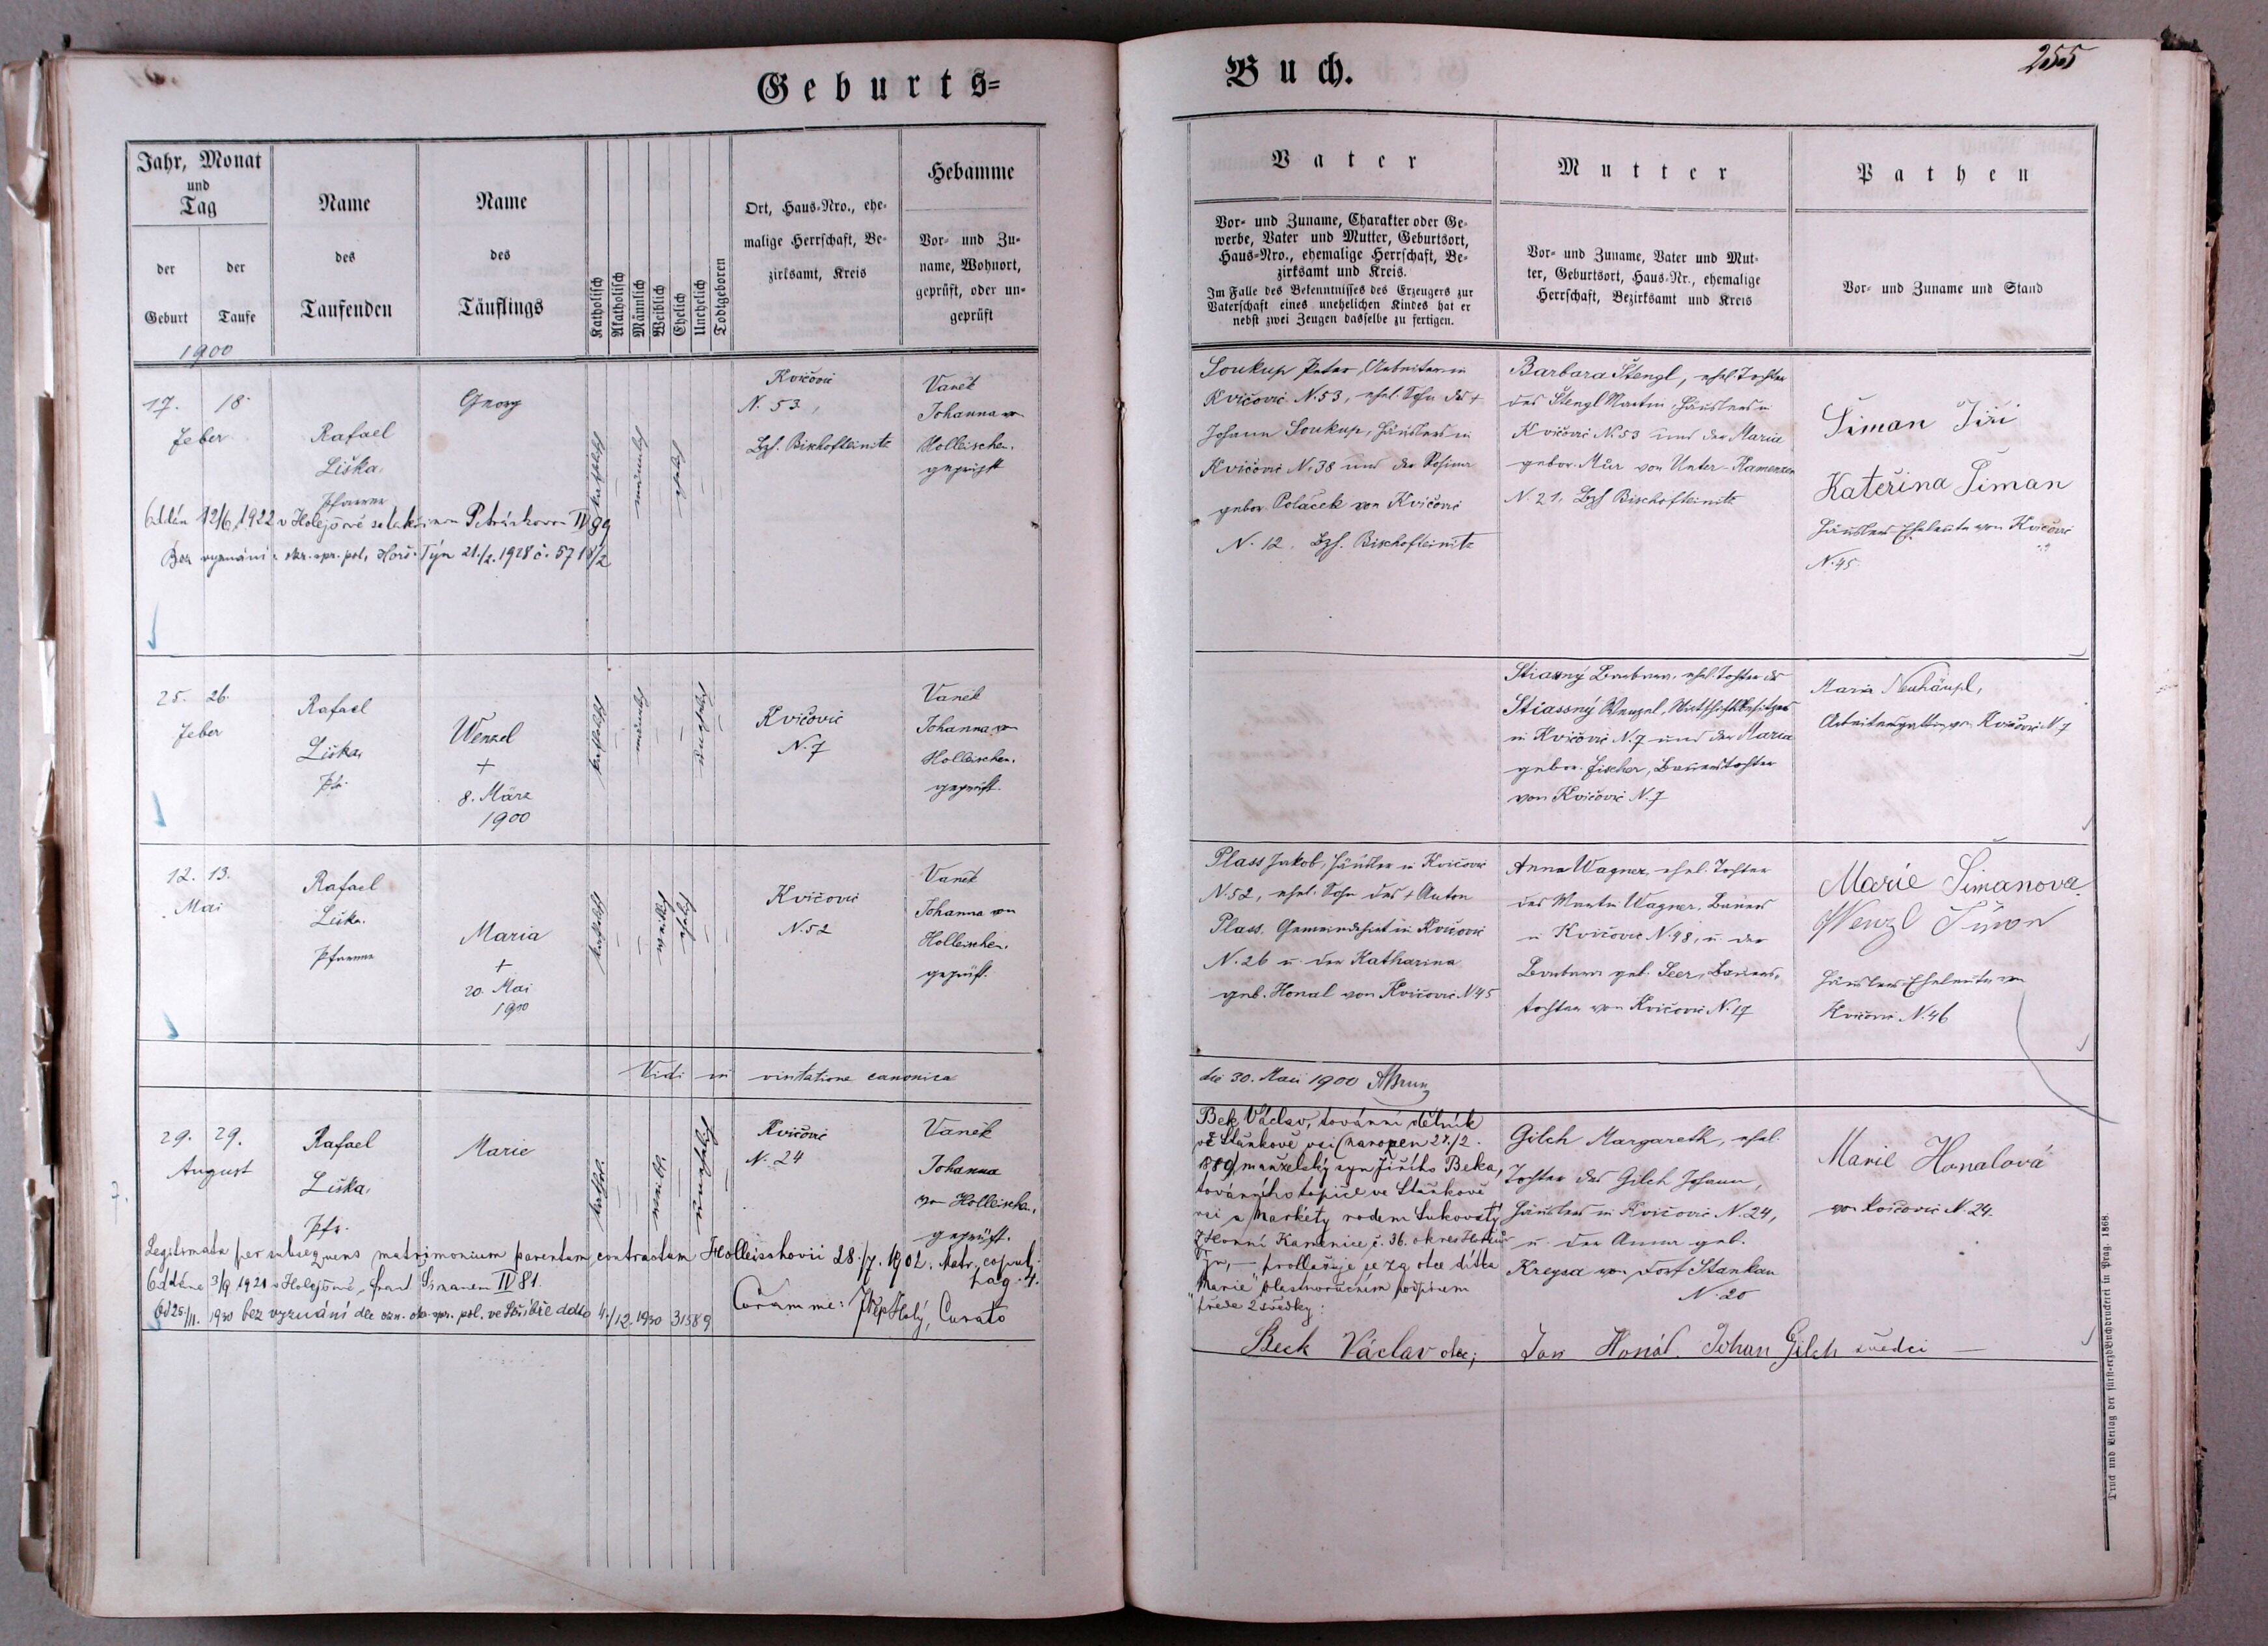 Geburts=
Buch.
255
Jahr, Monat
und
Tag
der
Geburt
der
Taufe
Name
des
Taufenden
Name
des
Täuflings
Katholisch
Akatholisch
Männlich
Weiblich
Ehelich
Unehelich
Todtgeboren
Ort, Haus-Nro., ehe-
malige Herrschaft, Be-
zirksamt, Kreis
Hebamme
Vor- und Zu-
name, Wohnort,
geprüft, oder un-
geprüft
Vater
Vor- und Zuname, Charakter oder Ge-
werbe, Vater und Mutter, Geburtsort,
Haus-Nro., ehemalige Herrschaft, Be-
zirksamt und Kreis.
Im Falle des Bekenntnisses des Erzeugers zur
Vaterschaft eines unehelichen Kindes hat er
nebst zwei Zeugen dasselbe zu fertigen.
Mutter
Vor- und Zuname, Vater und Mut-
ter, Geburtsort, Haus-Nr., ehemalige
Herrschaft, Bezirksamt und Kreis
Pathen
Vor- und Zuname und Stand
1900
17. 18.
Feber
Rafael
Liška,
Pfarrer
Georg
katholisch
männlich
ehelich
Kvičovic
N. 53,
Bzh. Bischofteinitz
Vaněk
Johanna von
Holleischen,
geprüft
Soukup Peter, Arbeiter in
Kvičovic N. 53, ehel. Sohn des +
Johann Soukup, Häuslers in
Kvičovic N. 38 und der Rosina
gebor. Polaček von Kvičovic
N. 12, Bzh. Bischofteinitz
Barbara Stengl, ehel. Tochter
des Stengl Martin, Häuslers in
Kvičovic N. 53 und der Maria
gebor. Mür von Unter-Kamenzen
N. 21. Bzh Bischofteinitz
Šiman Jiří
Kateřina Šiman
Häuslers Eheleute von Kvičovic
N. 45
Oddán 12/6 1922 v Holejšově s Petráchovou IV 89
Bez vyznání okr. spr. pol. Horš. Týn 21./2. 1928 č. 5718/2
25. 26.
Feber
Rafael
Liška,
Pfr.
Wenzel
+
8. März
1900
katholisch
männlich
unehelich
Kvičovic
N. 7
Vaněk
Johanna von
Holleischen,
geprüft.
Stiassný Barbara, ehel. Tochter des
Stiassný Wenzel, Wirtschaftsbesitzers
in Kvičovic N. 7 und der Maria
gebor. Fischer, Bauerstochter
von Kvičovic N. 7
Maria Neuhäupl,
Arbeitersgattin von Kvičovic N 7
12. 13.
Mai
Rafael
Liška.
Pfarrer
Maria
+
20. Mai
1900
katholisch
weiblich
ehelich
Kvičovic
N. 52
Vaněk
Johanna von
Holleischen,
geprüft.
Plass Jakob, Häusler in Kvičovic
N. 52, ehel. Sohn des + Anton
Plass, Gemeindehirt in Kvičovic
N. 26 u. der Katharina
geb. Honal von Kvičovic N 45
Anna Wagner, ehel. Tochter
des Martin Wagner, Bauers
in Kvičovic N. 48, u. der
Barbara geb. Seer, Bauers-
tochter von Kvičovic N. 17
Marie Šimanova
Wenzl Šimon
Häuslers Eheleute von
Kvičovic N. 46
Vidi in visitatione canonica
die 30. Maii 1900
29. 29.
August
Rafael
Liška,
Pfr.
Marie
kathol.
weibl.
unehelich
Kvičovic
N. 24
Vaněk
Johanna
von Holleischen,
geprüft.
Bek Václav, tovární dělník
ve Staňkově vsi (narozen 28./2.
1880) manželský syn Jiřího Beka,
továrního topiče ve Staňkově
vsi a Markéty rodem Lukovatý
z Horní Kamenice č. 36. okres Horšův
Týn, — prohlašuje se za otce dítka
"Marie" vlastnoručním podpisem
přede 2 svědky:
Gilch Margareth, ehel.
Tochter des Gilch Johann,
Häuslers in Kvičovic N. 24,
u. der Anna geb.
Kreysa von Dorf Stankau
N. 20
Marie Honalová
von Kvičovic N. 24.
Legitimata per subsequens matrimonium parentum contractum Holleischovii 28./7. 1902. Matr. copul.
pag. 4.
Oddána 3/9 1921 v Holejšově, Frant Šimanem IV 81.
Od 25/11. 1930 bez vyznání dle ozn. okr. spr. pol. ve Stříbře ddto 4./12. 1930 31589
Coram me: Josef Holý, Curato
Beck Václav otec; Jan Honál. Johan Gilch svědci —
Druck und Verlag der fürst-erzb. Buchdruckerei in Prag. 1868.